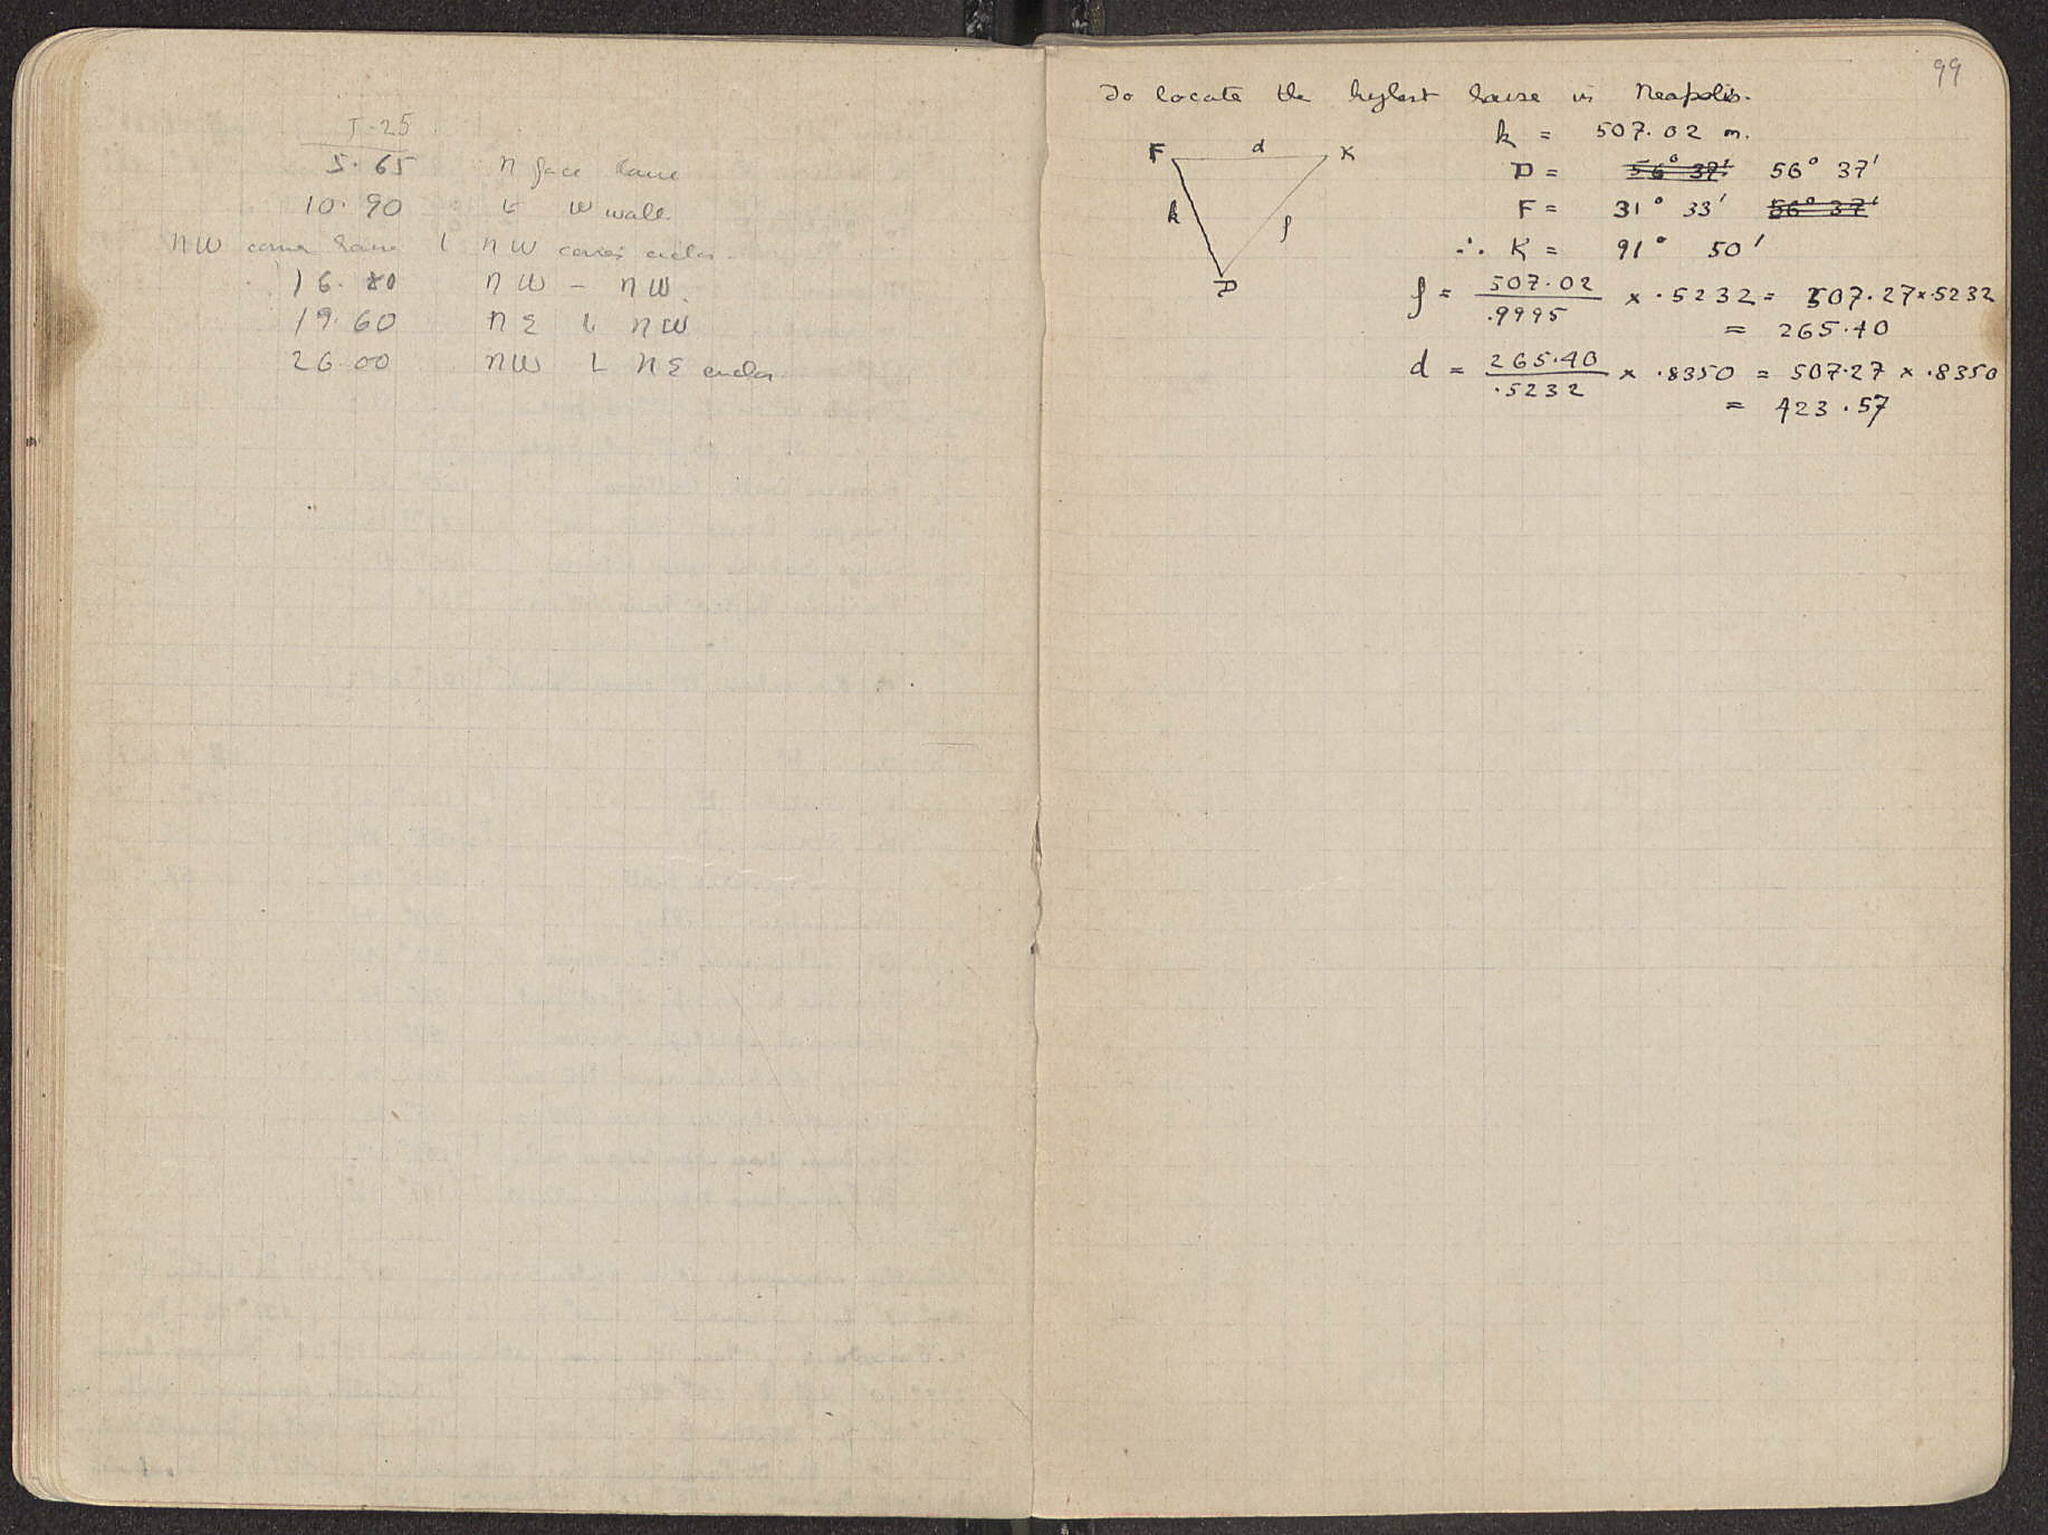 5.25
5.65 N face house
10.90 L W wall
NW corner house L NW corner enclos.
16.80 NW – NW.
19.60 NE L NW
26.00 NW L NE enclos
99
To locate the highest house in Neapolis.
F d K
k f
D
k = 507.02 m.
D = 56° 37' 56° 37'
F = 31° 33' 56° 37'
∴ K = 91° 50'
f = 507.02 / .9995 × .5232 = 507.27 × .5232
= 265.40
d = 265.40 / .5232 × .8350 = 507.27 × .8350
= 423.57